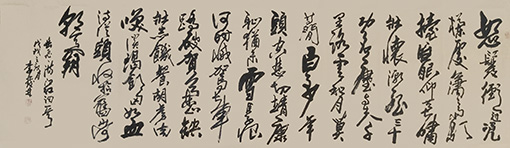 怒髮衝冠憑
欄處瀟瀟雨歇
擡望眼仰天長嘯
壯懷激烈三十
功名塵與土八千
里路雲和月莫
等閒白了少年
頭空悲切靖康
恥猶未雪臣子恨
何時滅駕長車
踏破賀蘭山缺
壯志飢餐胡虜肉
笑談渴飲匈奴血
待從頭收拾舊山河
朝天闕
岳飛滿江紅詞一首
戊戌